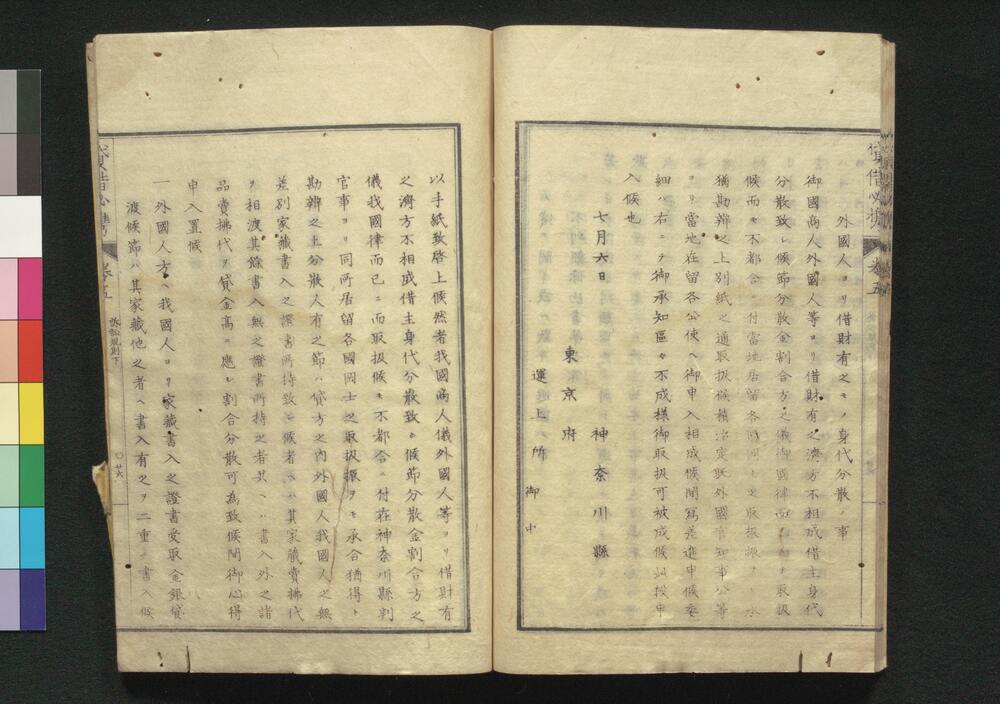 外國人ヨリ借財有之モノ身代分散ノ事
御國商人外國人等ヨリ借財有之濟方不相成借主身代
分散致シ候節分散金割合方之儀御國律而已ニ而取扱
候而モ不都合ニ付當地居留各國同士之取扱振ヲモ承
猶勘辨之上別紙之通取扱候積治定取外國官知事公等
ヨリ當地在留各公使ヘ御申入相成候間寫差進申候委
細ハ右ニテ御承知區々不成樣御取扱可被成候此段申
入候也
七月六日
神奈川縣
東京府
運上所御中
以手紙致啓上候然者我國商人儀外國人等ヨリ借財有
之濟方不相成借主身代分散致シ候節分散金割合方之
儀我國律而已ニ而取扱候モ不都合ニ付在神奈川縣判
官事ヨリ同所居留各國同士之取扱振ヲモ承合猶得ト
勘辨之上分散人有之節ハ貸方之內外國人我國人之無
差別家藏書入之證書所持致シ候者ヘハ其家藏賣拂代
ヲ相渡其餘書入無之證書所持之者共ヘハ書入外之諸
品賣拂代ヲ貸金高ニ應シ割合分散可為致候間御心得
申入置候
一外國人方ヘ我國人ヨリ家藏書入之證書受取金銀貸
渡候節ハ其家藏他之者ヘ書入有之ヲ二重ニ書入候
貸借必携
卷五
訴訟規則下
〇廿六